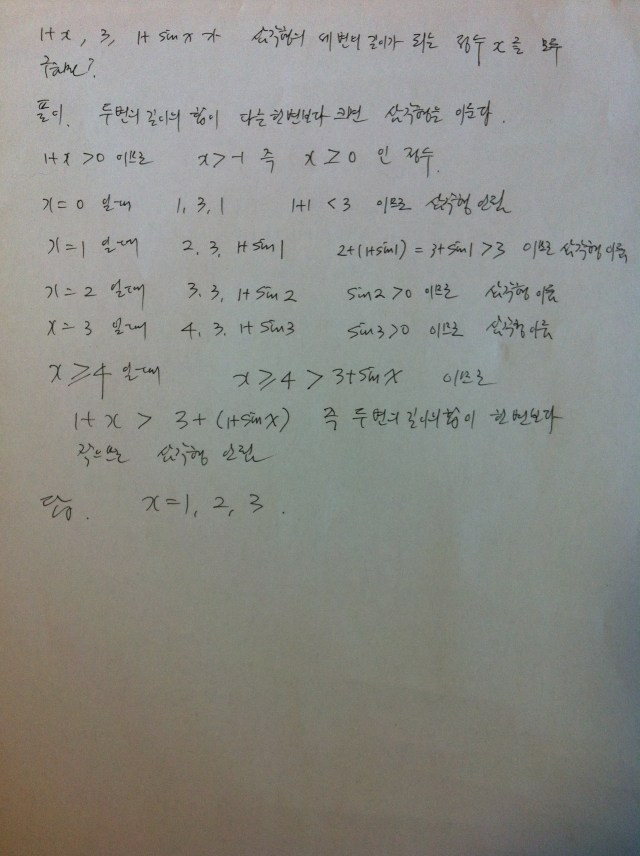 1+x, 3, 1+sin x가 삼각형의 세 변의 길이가 되는 정수 x를 모두
구하면?
풀이. 두변의 길이의 합이 다른 한변보다 크면 삼각형을 이룬다.
1+x >0 이므로 x>-1 즉 x≥0 인 정수.
x=0 일때 1, 3, 1 1+1 <3 이므로 삼각형 안됨
x=1 일때 2, 3, 1+sin1 2+(1+sin1) = 3+sin1 >3 이므로 삼각형 이룸
x=2 일때 3, 3, 1+sin2 sin2>0 이므로 삼각형 이룸
x=3 일때 4, 3, 1+sin3 sin3>0 이므로 삼각형 이룸
x≥4 일때 x≥4 > 3+sinx 이므로
1+x > 3+(1+sinx) 즉 두변의 길이의 합이 한 변보다
작으므로 삼각형 안됨
답. x=1, 2, 3.